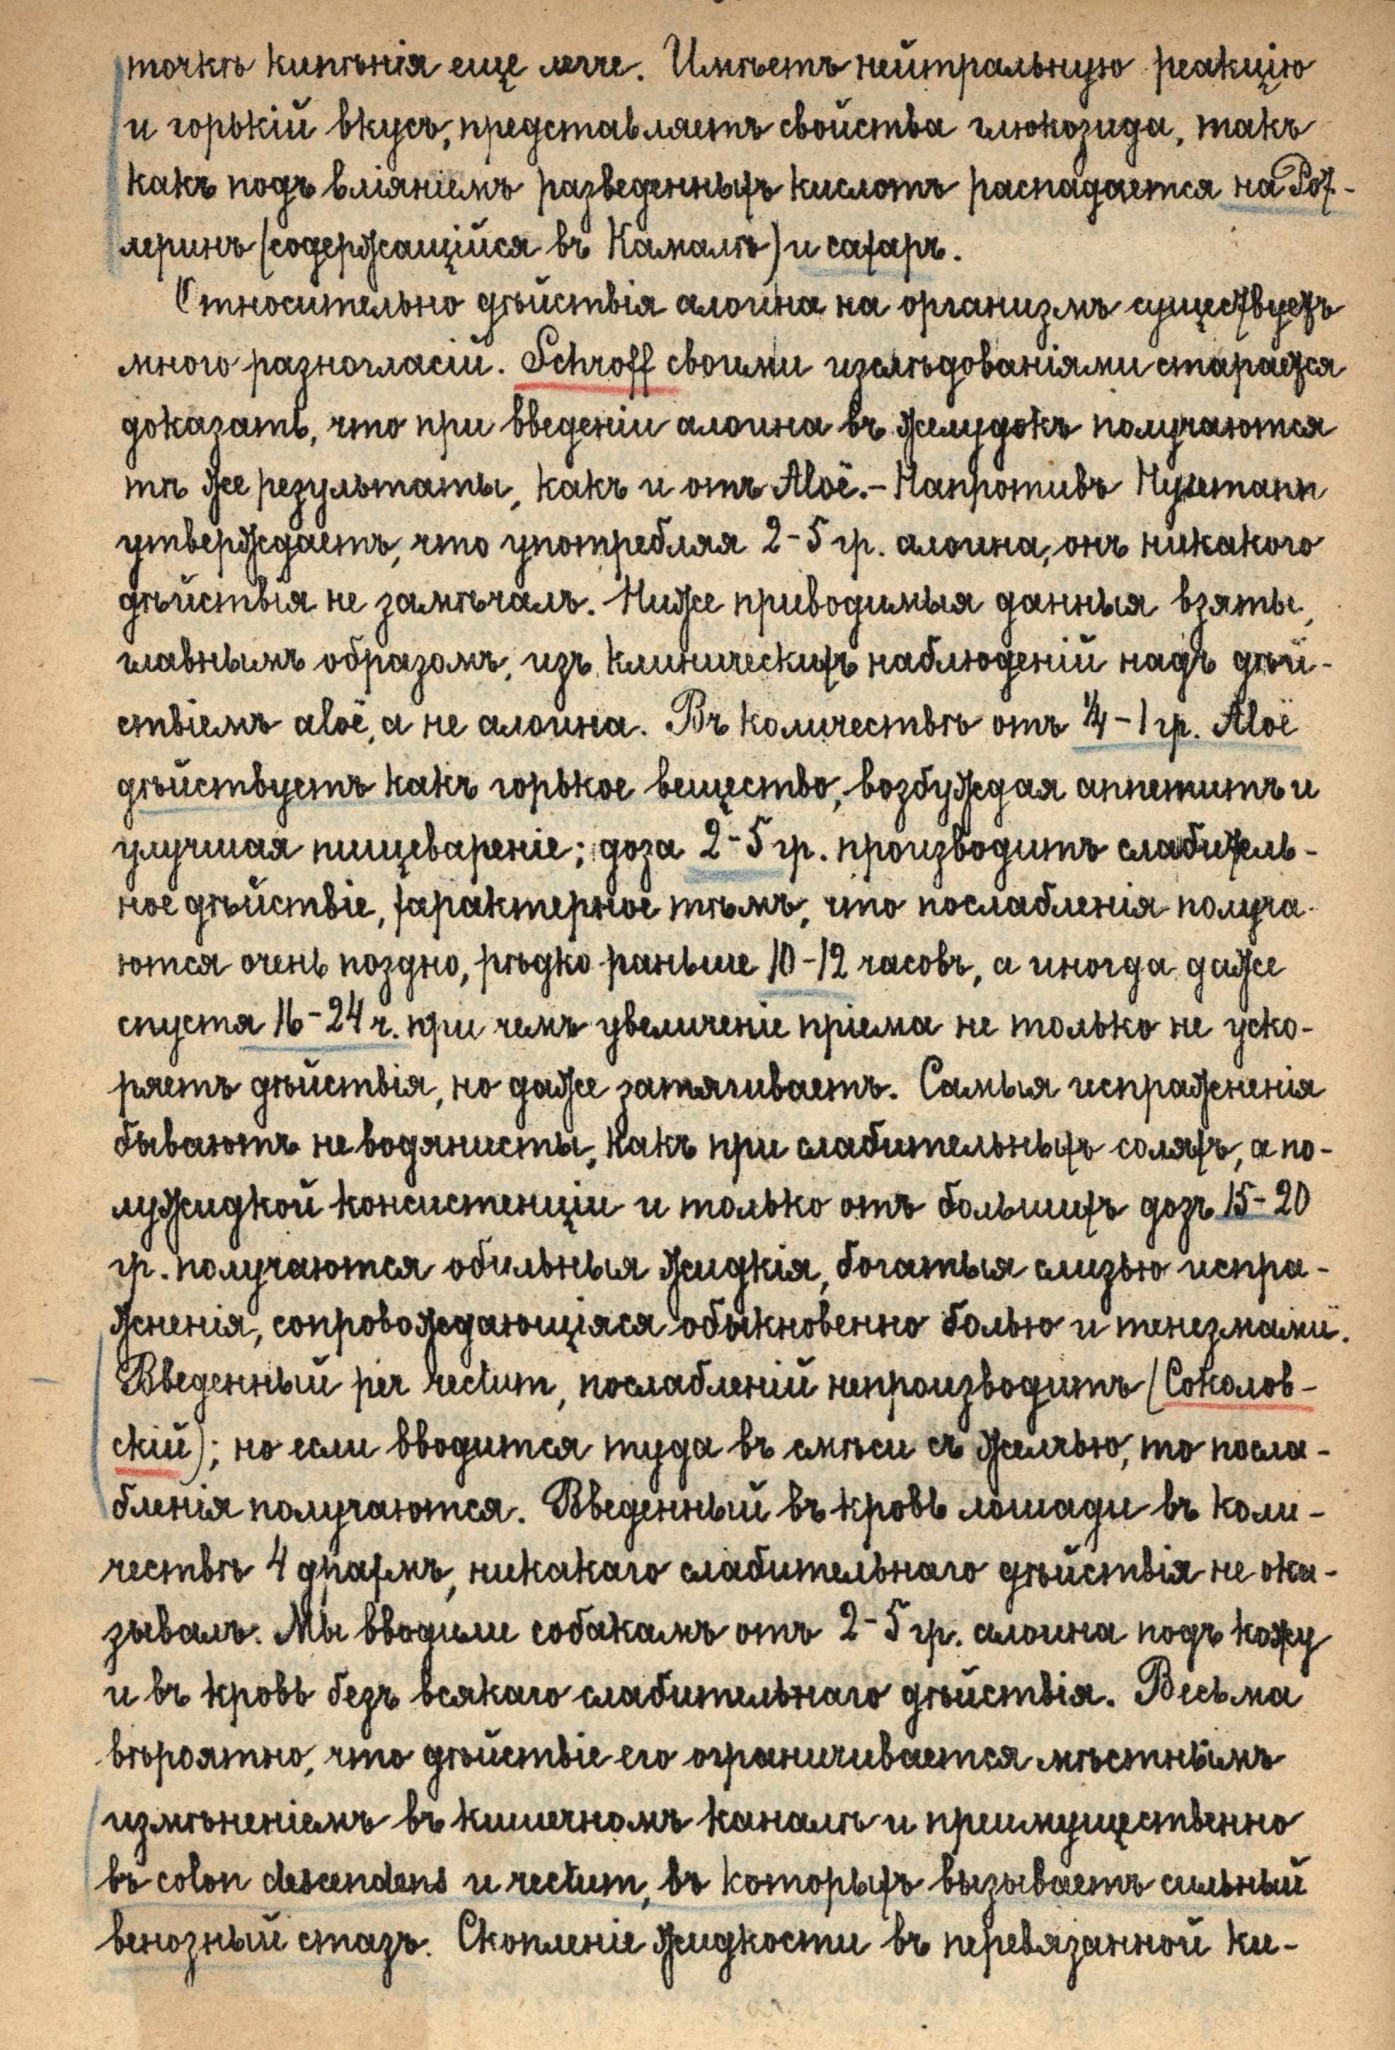 точкѣ кипѣнія еще легче. Имѣетъ нейтральную реакцію
и горькій вкусъ, представляетъ свойства глюкозида, такъ
какъ подъ вліяніемъ разведенныхъ кислотъ распадается на Рот-
леринъ (содержащійся въ Камалѣ) и сахаръ.
Относительно дѣйствія алоина на организмъ существуетъ
много разногласій. Schroff своими изслѣдованіями старается
доказать, что при введеніи алоина въ желудокъ получаются
тѣ же результаты, какъ и отъ Aloë.- Напротивъ
утверждаетъ, что употребляя 2-5 гр. алоина, онъ никакого
дѣйствія не замѣчалъ. Ниже приводимыя данныя взяты,
главнымъ образомъ, изъ клиническихъ наблюденій надъ дѣй-
ствіемъ aloë, а не алоина. Въ количествѣ отъ ¼-1 гр. Aloë
дѣйствуетъ какъ горькое вещество, возбуждая аппетитъ и
улучшая пищевареніе; доза 2-5 гр. производитъ слабитель-
ное дѣйствіе, характерное тѣмъ, что послабленія получа-
ются очень поздно, рѣдко раньше 10-12 часовъ, а иногда даже
спустя 16-24 ч. при чемъ увеличеніе пріема не только не уско-
ряетъ дѣйствія, но даже затягиваетъ. Самыя испражненія
бываютъ не водянисты, какъ при слабительныхъ соляхъ, а по-
лужидкой консистенціи и только отъ большихъ дозъ 15-20
гр. получаются обильныя жидкія, богатыя слизью испра-
жненія, сопровождающіяся обыкновенно болью и тенезмами.
Введенный per rectum, послабленій непроизводитъ (Соколов-
скій); но если вводится туда въ смѣси съ желчью, то посла-
бленія получаются. Введенный въ кровь лошади въ коли-
чествѣ 4 драхмъ, никакаго слабительнаго дѣйствія не ока-
зывалъ. Мы вводили собакамъ отъ 2-5 гр. алоина подъ кожу
и въ кровь безъ всякаго слабительнаго дѣйствія. Весьма
вѣроятно, что дѣйствіе его ограничивается мѣстнымъ
измѣненіемъ въ кишечномъ каналѣ и преимущественно
въ colon descendens и rectum, въ которыхъ вызываетъ сильный
венозный стазъ. Скопленіе жидкости въ перевязанной ки-